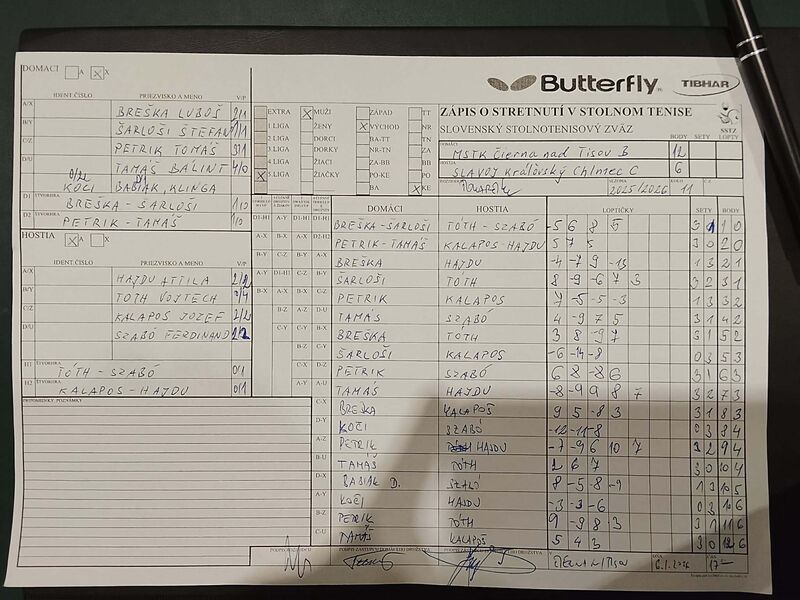 DOMÁCI A X
IDENT. ČÍSLO PRIEZVISKO A MENO V/P
A/X BREŠKA LUBOŠ
B/Y ŠARLOŠI ŠTEFAN 1/1
C/Z PETRIK TOMÁŠ 3/1
D/U TAMÁŠ BÁLINT 4/0
KOČI BABIAK, KLINGA
D1 BREŠKA - ŠARLOŠI 1/0
D2 PETRIK - TAMÁŠ 1/0
HOSTIA A X
IDENT. ČÍSLO PRIEZVISKO A MENO V/P
A/X HAJDU ATTILA 2/2
B/Y TÓTH VOJTECH
C/Z KALAPOS JOZEF 2/2
D/U SZABÓ FERDINAND 2/2
H1 ŠTVORHRA TÓTH - SZABÓ 0/1
H2 ŠTVORHRA KALAPOS - HAJDU 0/1
PRIPOMIENKY, POZNÁMKY
EXTRA MUŽI ZÁPAD TT
1 LIGA ŽENY VÝCHOD NR
2 LIGA DORCI RA-TT TN
3 LIGA DORKY NR-TN ZA
4 LIGA ŽIACI ZA-BB BB
5 LIGA ŽIAČKY PO-KE PO
BA KE
Butterfly TIBHAR
ZÁPIS O STRETNUTÍ V STOLNOM TENISE
SLOVENSKÝ STOLNOTENISOVÝ ZVÄZ
SSTZ
BODY SETY LOPTY
DOMÁCI MSTK Čierna nad Tisou B 12
HOSTIA SLAVOJ Kráľovský Chlmec C 6
SEZÓNA 2025/2026 KOLO 11
DOMÁCI HOSTIA LOPTIČKY SETY BODY
BREŠKA-ŠARLOŠI TÓTH - SZABÓ -5 6 8 5 3 1 1 0
PETRIK-TAMÁŠ KALAPOS-HAJDU 5 7 5 3 0 2 0
BREŠKA HAJDU -4 -7 9 -13 1 3 2 1
ŠARLOŠI TÓTH 8 -9 -6 7 3 3 2 3 1
PETRIK KALAPOS 7 -5 -5 -3 1 3 3 2
TAMÁŠ SZABÓ 4 -9 7 5 3 1 4 2
BREŠKA TÓTH 3 8 -9 7 3 1 5 2
ŠARLOŠI KALAPOS -6 -14 -8 0 3 5 3
PETRIK SZABÓ 6 8 -8 6 3 1 6 3
TAMÁŠ HAJDU -8 -9 9 8 7 3 2 7 3
BREŠKA KALAPOS 9 5 -8 3 3 1 8 3
KOČI SZABÓ -12 -11 -8 0 3 8 4
PETRIK HAJDU -7 -9 6 10 7 3 2 9 4
TAMÁŠ TÓTH 2 6 7 3 0 10 4
BABIAK D. SZABÓ 8 -5 -8 -9 1 3 10 5
KOČI HAJDU -3 -3 -6 0 3 10 6
PETRIK TÓTH 9 -9 8 3 3 1 11 6
TAMÁŠ KALAPOS 5 4 3 3 0 12 6
PODPIS ROZHODCU PODPIS ZÁSTUPCU DOMÁCEHO DRUŽSTVA